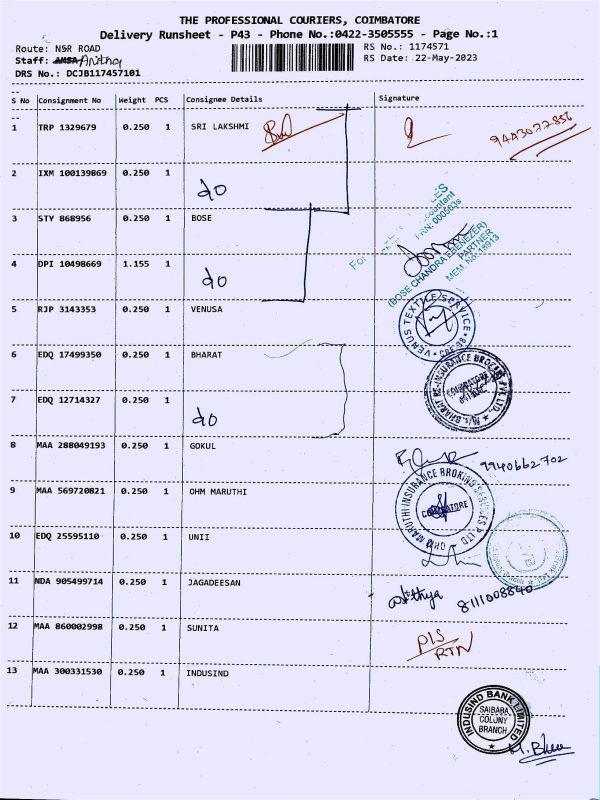 THE PROFESSIONAL COURIERS, COIMBATORE
Delivery Runsheet - P43 - Phone No.:0422-3505555 - Page No.:1
Route: NSR ROAD
RS No.: 1174571
Staff: Anitha
RS Date: 22-May-2023
DRS No.: DCJB117457101
S No Consignment No Weight PCS Consignee Details Signature
1 TRP 1329679 0.250 1 SRI LAKSHMI
9443077856
2 IXM 100139869 0.250 1
do
3 STY 868956 0.250 1 BOSE
4 DPI 10498669 1.155 1
do
(BOSE CHANDRA EBENEZER)
PARTNER
MEM. No.18913
5 RJP 3143353 0.250 1 VENUSA
VENUS TEXTILE SERVICE
CBE-38
6 EDQ 17499350 0.250 1 BHARAT
M/s. BHARAT RE-INSURANCE BROKERS PVT. LTD.,
COIMBATORE
7 EDQ 12714327 0.250 1
do
8 MAA 288049193 0.250 1 GOKUL
9940662702
9 MAA 569720821 0.250 1 OHM MARUTHI
OHM MARUTHI INSURANCE BROKING SERVICES P LTD
COIMBATORE
10 EDQ 25595110 0.250 1 UNII
11 NDA 905499714 0.250 1 JAGADEESAN
8111008840
12 MAA 860002998 0.250 1 SUNITA
RTN
13 MAA 300331530 0.250 1 INDUSIND
INDUSIND BANK LIMITED
SAIBABA
COLONY
BRANCH